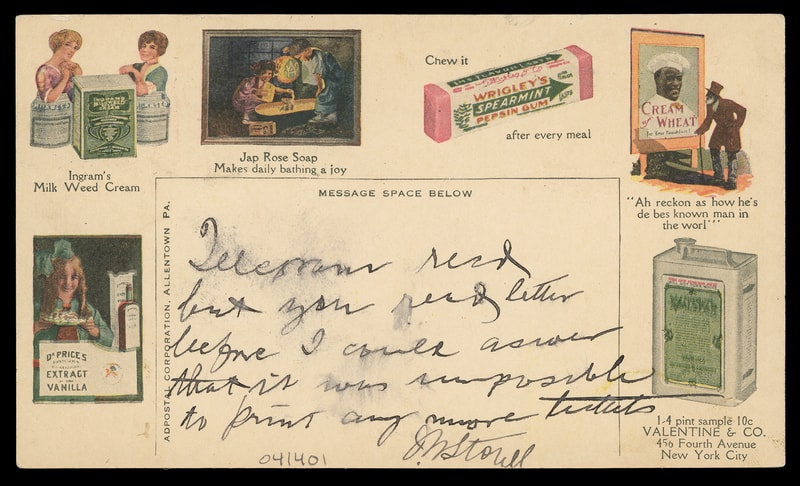 INGRAM'S
MILKWEED
CREAM
Ingram's
Milk Weed Cream
Jap Rose Soap
Makes daily bathing a joy
Chew it
THE FLAVOR LASTS
WRIGLEY'S
SPEARMINT
PEPSIN GUM
after every meal
CREAM
of WHEAT
for Your Breakfast
"Ah reckon as how he's
de bes known man in
the worl'"
DR PRICE'S
EXTRACT
VANILLA
ADPOSTAL CORPORATION, ALLENTOWN PA.
MESSAGE SPACE BELOW
Telegram recd
but you recd letter
before I could answer
that it was impossible
to print any more tickets
041401
VALSPAR
1-4 pint sample 10c
VALENTINE & CO.
456 Fourth Avenue
New York City